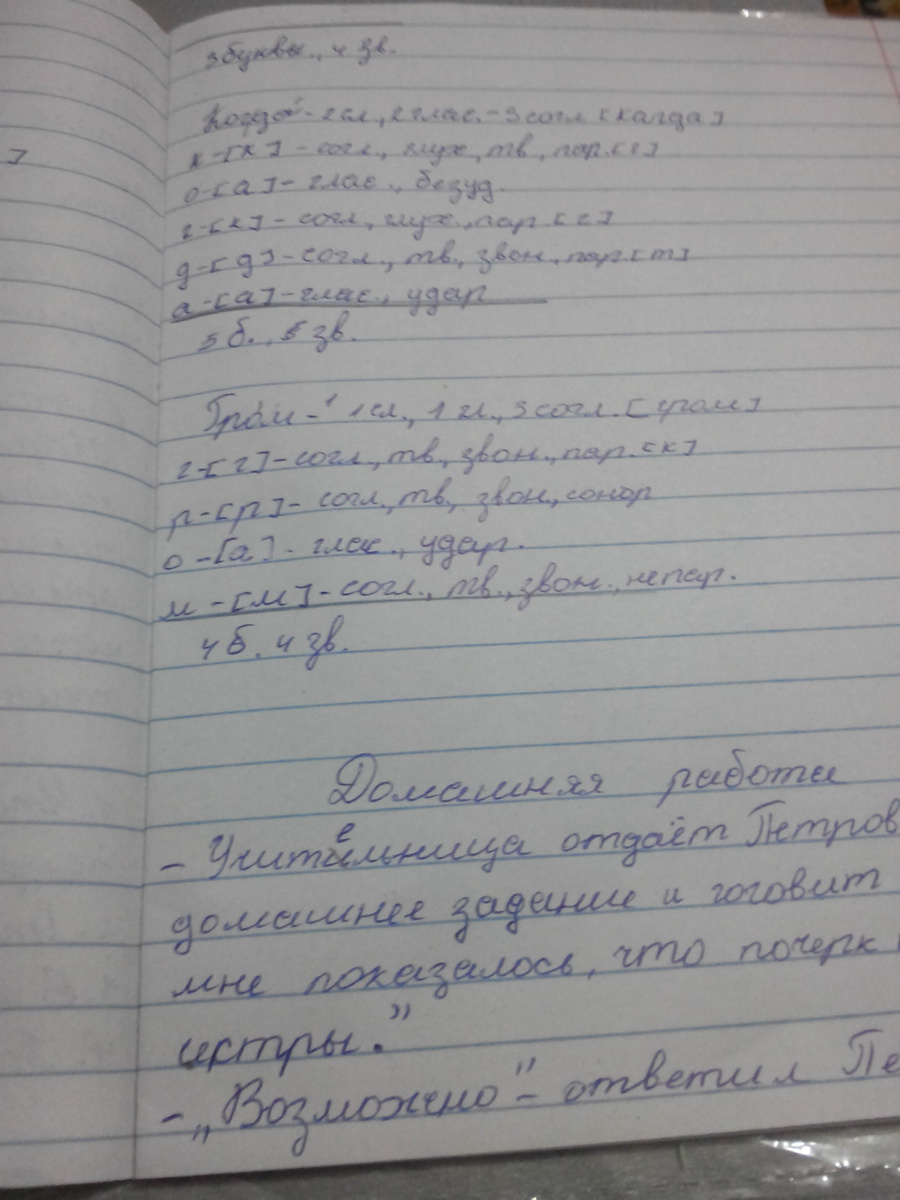 3 буквы, 4 зв.
Когда́ - 2 сл., 2 глас. - 3 согл [кагда]
]
к - [к] - согл., глух, тв, пар. [г]
о - [а] - глас., безуд.
г - [к] - согл, глух., пар. [г]
д - [д] - согл., тв., звон., пар. [т]
а - [а] - глас., удар
5 б., 5 зв.
Гром - 1 сл., 1 гл., 3 согл. [гром]
г - [г] - согл., тв., звон., пар. [к]
р - [р] - согл, тв., звон, сонор
о - [а] - глас., удар.
м - [м] - согл., тв., звон., непар.
4 б. 4 зв.
Домашняя работа
- Учительница отдаёт Петров
домашнее задание и гоговит
мне показалось, что почерк
истры."
- „Возможно" - ответил Пе